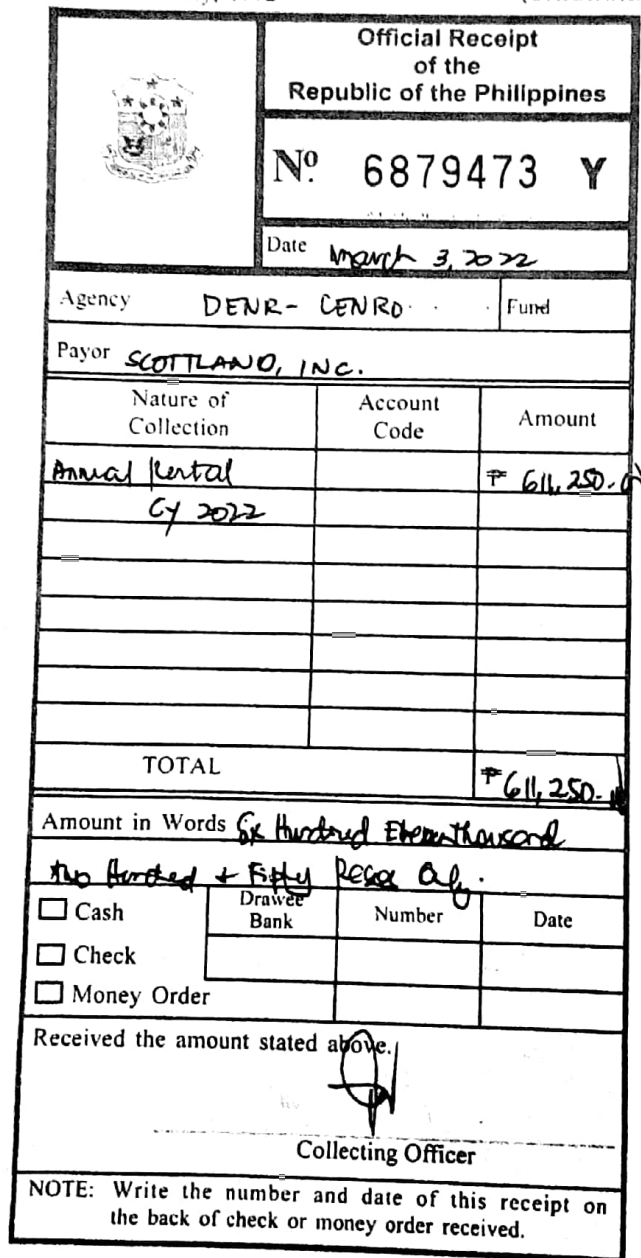 Official Receipt
of the
Republic of the Philippines
Nº. 6879473 Y
Date March 3, 2022
Agency DENR- CENRO Fund
Payor SCOTTLAND, INC.
Nature of Collection Account Code Amount
Annual Rental ₱ 611,250.
CY 2022
TOTAL ₱ 611,250.
Amount in Words Six Hundred Eleven Thousand
two Hundred + Fifty Pesos Only.
Cash Drawee Bank Number Date
Check
Money Order
Received the amount stated above.
Collecting Officer
NOTE: Write the number and date of this receipt on
the back of check or money order received.